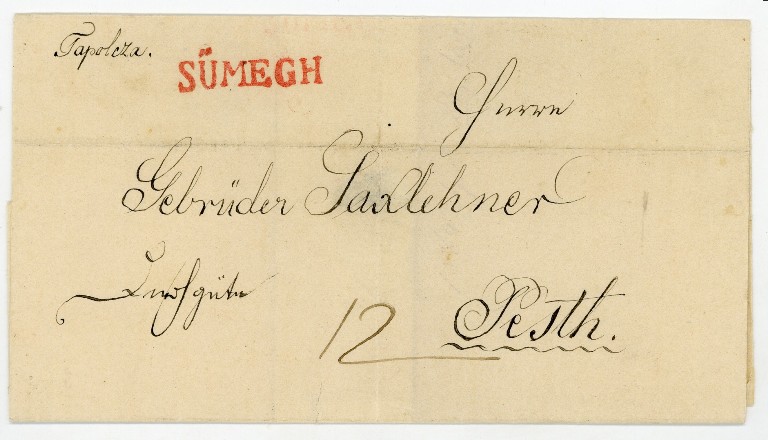 Tapolcza.
SÜMEGH
Herrn
Gebrüder Saxlehner
12
Pesth.